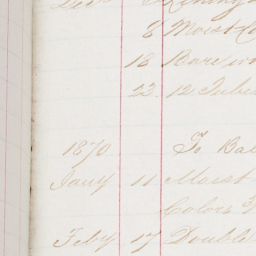 8 Moist Co
16
22 12 Tubes
1870 To Bal
Jany 11 Moist
Colors
Feby 17 Double